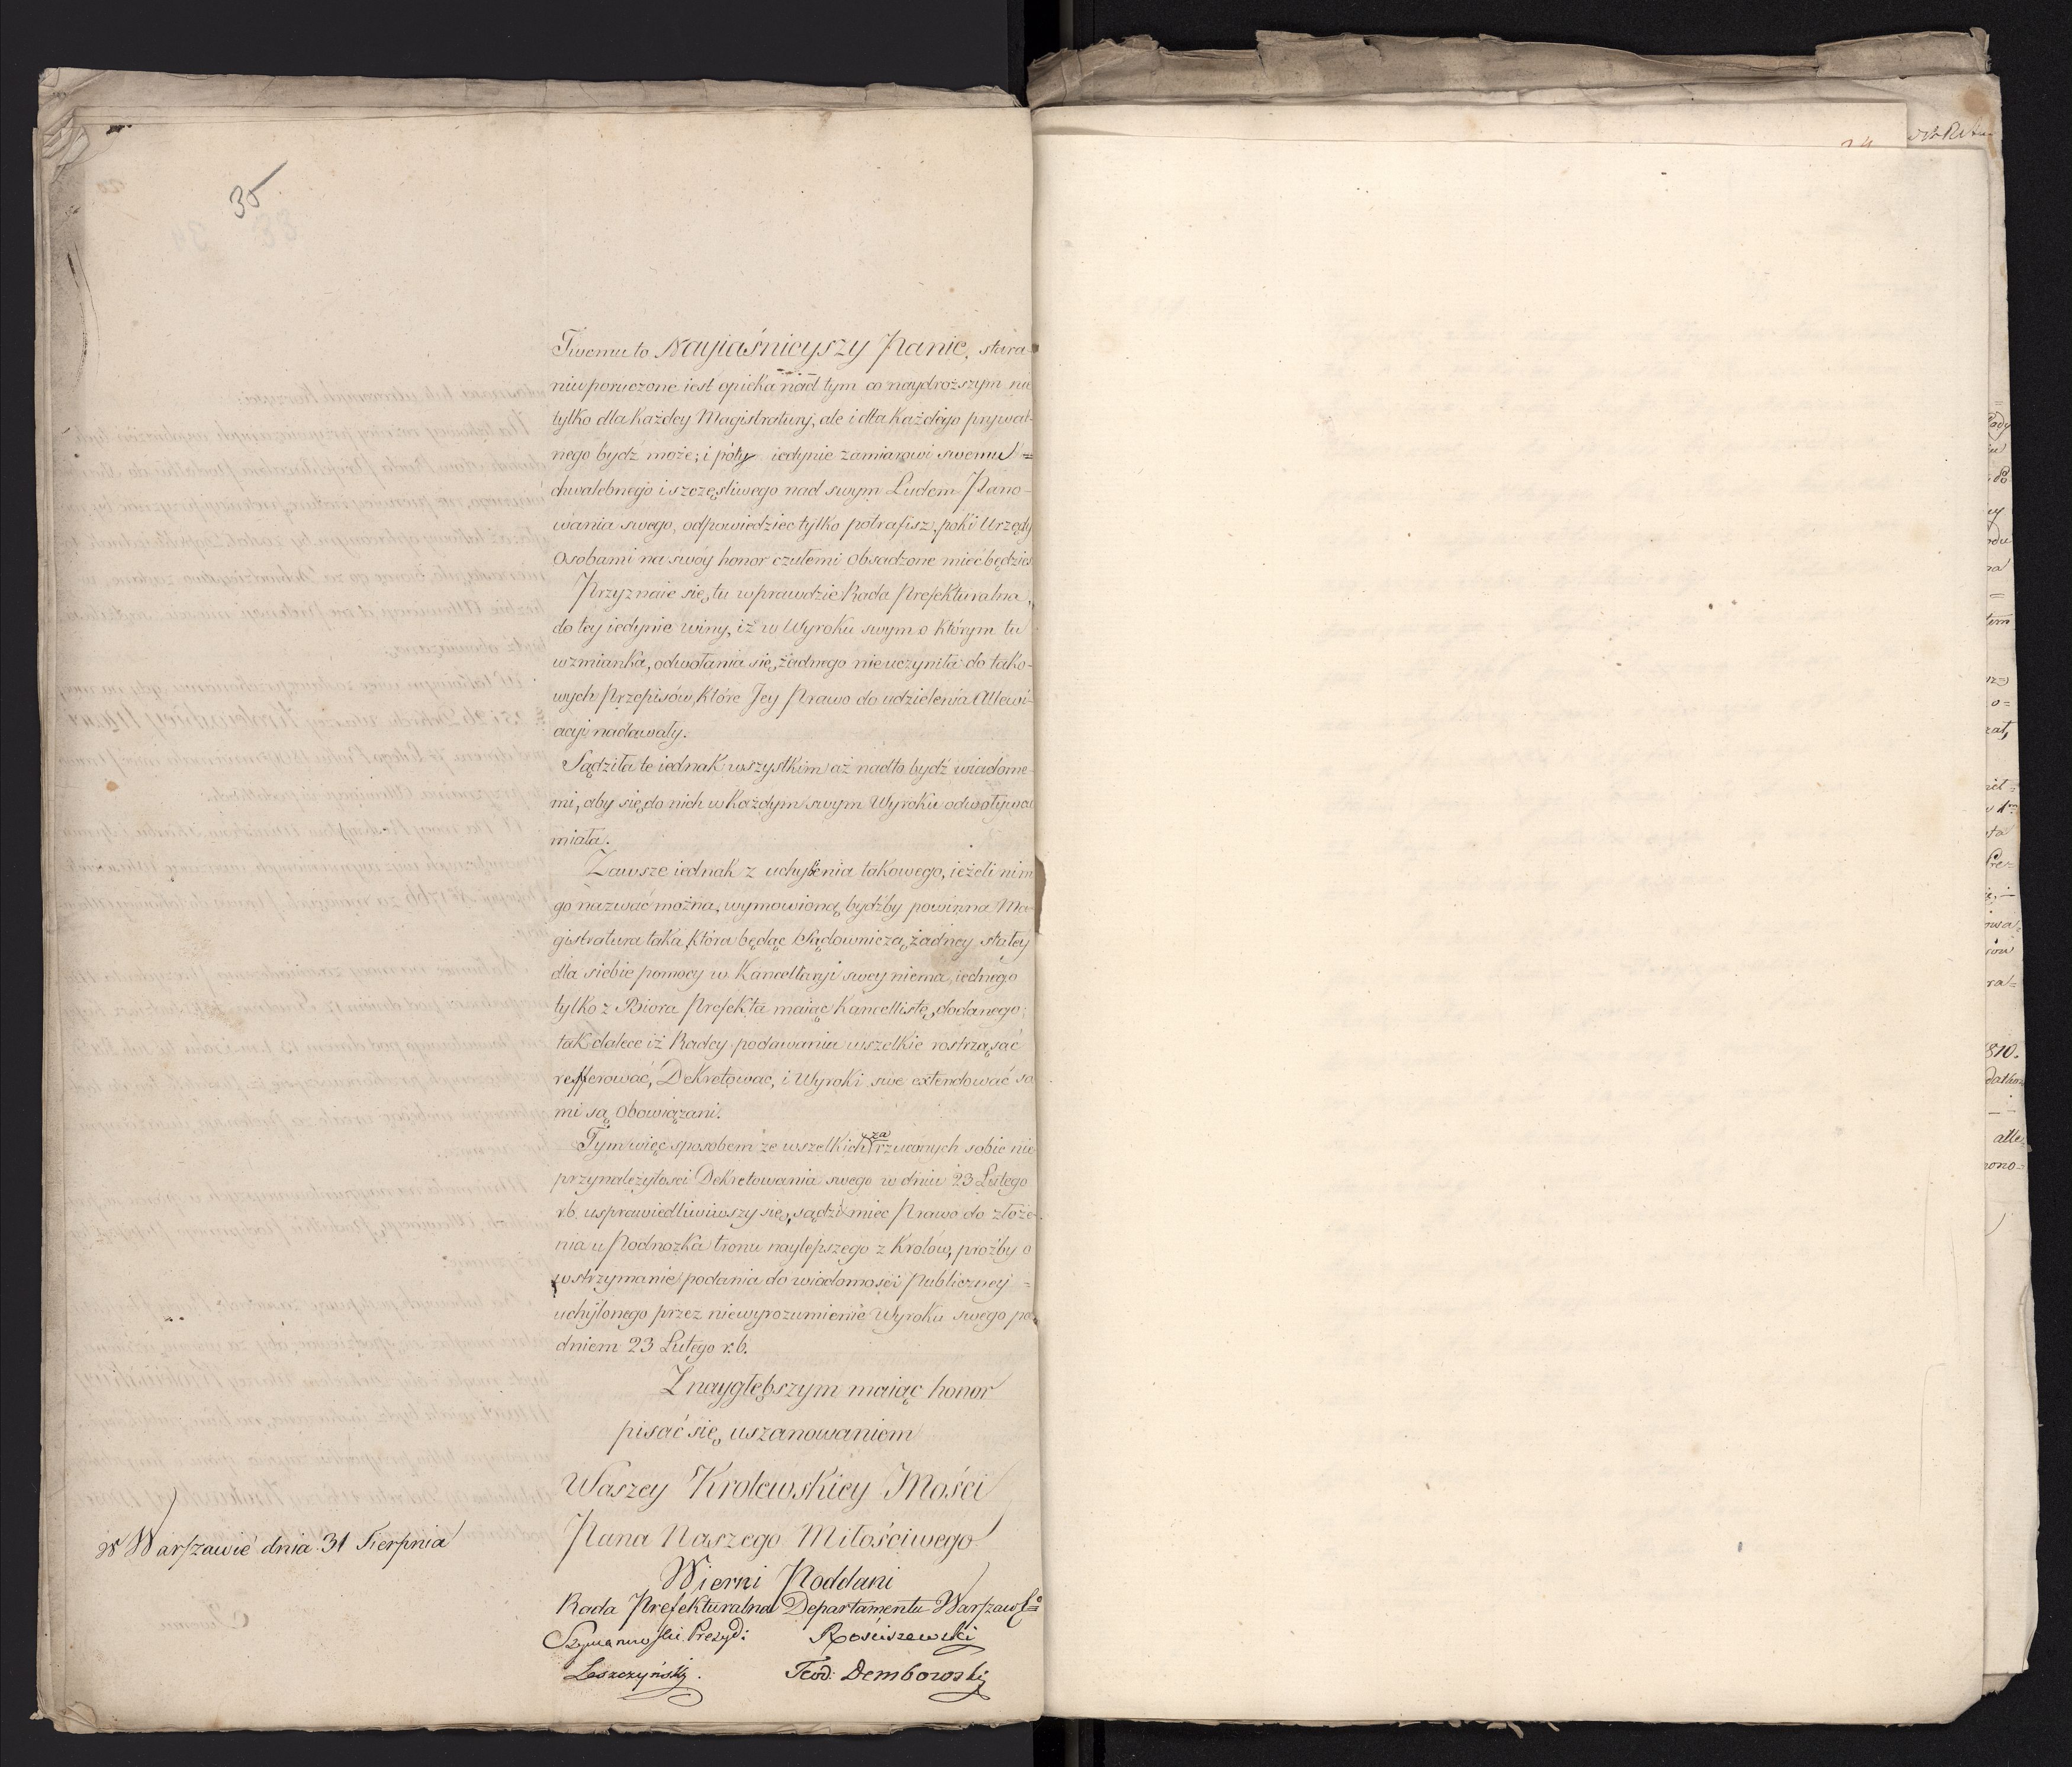 35
Twemu to Nayiaśnieyszy Panie, stara-
niu poruczone iest opieka nad tym co naydroższym nie
tylko dla każdey Magistratury, ale i dla każdego prywat-
nego bydz może; i póty iedynie zamiarowi swemu =
chwalebnego i szczęśliwego nad swym Ludem Pano-
wania swego, odpowiedziec tylko potrafisz, poki Urzędy
Osobami na swóy honor czułemi obsadzone mieć będziesz
Przyznaie się tu wprawdzie Rada Prefekturalna,
do tey iedynie winy, iż w Wyroku swym o którym tu
wzmianka, odwołania się żadnego nieuczyniła do tako-
wych Przepisów, które Jey Prawo do udzielenia Allewi-
acyi nadawały.
Sądziła te iednak wszystkim aż nadto bydź wiadome-
mi, aby się do nich w każdym swym Wyroku odwoływać
miała.
Zawsze iednak z uchybienia takowego, ieżeli nim
go nazwać można, wymowioną bydźby powinna Ma-
gistratura taka, która będąc Sądowniczą, żadney stałey
dla siebie pomocy w Kancellaryi swey niema, iednego
tylko z Biora Prefekta maiąc Kancellistę dodanego;
tak dalece iż Radcy podawania wszelkie rostrząsać
refferować, Dekretować, i Wyroki swe extendować sa-
mi są Obowiązani.
Tym więc sposobem ze wszelkich za rzuconych sobie nie
przynależytosci Dekretowania swego w dniu 23 Lutego
r.b. usprawiedliwiwszy się, sądzi mieć Prawo do złoże-
nia u Podnozka tronu naylepszego z Krolów, proźby o
wstrzymanie podania do wiadomości Publiczney =
uchylonego przez niewyrozumienie Wyroku swego pod
dniem 23 Lutego r.b.
Z naygłębszym maiąc honor
pisać się uszanowaniem
Waszey Krolewskiey Mości
Pana Naszego Miłościwego
w Warszawie dnia 31 Sierpnia
Wierni Poddani
Rada Prefekturalna Departamentu Warszawsko
Szymanowski Prezyd: Rościszewski
Leszczyński. Teod: Dembowski